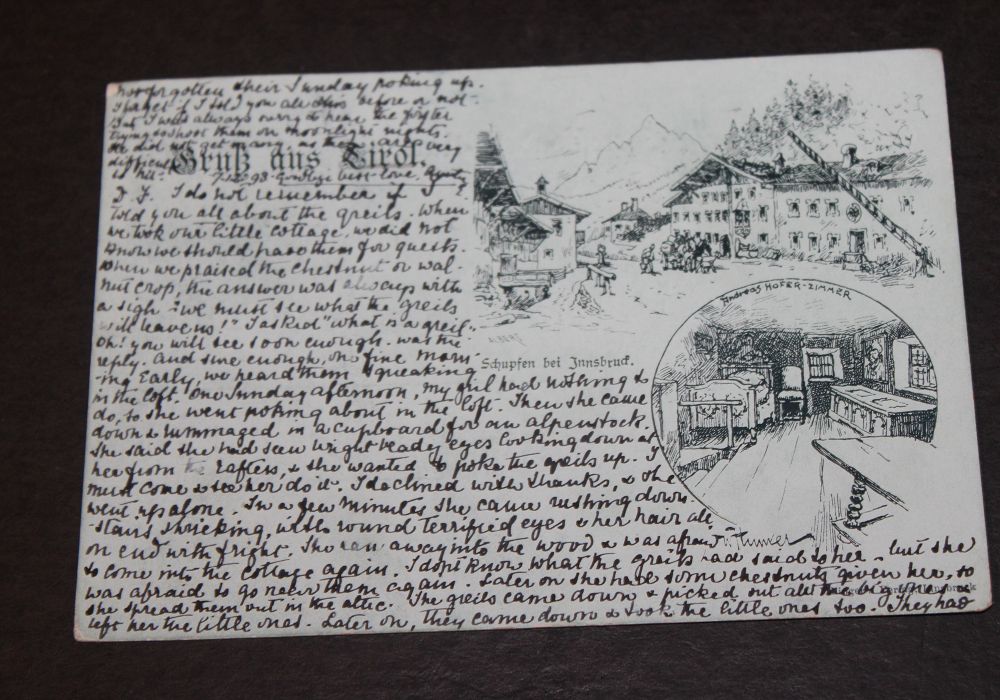 not forgotten their Sunday poking up.
I forget if I told you all this before or not.
But I was always sorry to hear the forster
trying to shoot them on moonlight nights.
He did not get many, as they are very
difficult
to hit. 7.12.98. Goodbye best love. Aunty
Gruß aus Tirol.
D. F. I do not remember if I
told you all about the greils. When
we took our little cottage, we did not
know we should have them for guests.
When we praised the chestnut or wal-
nut crop, the answer was always with
a sigh "we must see what the greils
will leave us!" I asked "what is a greil"
Oh! you will see soon enough. was the
reply. And sure enough, one fine morn-
ing early, we heard them squeaking
in the loft. One Sunday afternoon, my girl had nothing to
do, so she went poking about in the loft. Then she came
down & rummaged in a cupboard for an alpenstock.
She said she had seen bright beady eyes looking down at
her from the rafters, & she wanted to poke the greils up. I
must come & see her do it. I declined with thanks, & she
went up alone. In a few minutes she came rushing down
stairs, shrieking, with round terrified eyes & her hair all
on end with fright. She ran away into the wood & was afraid
to come into the cottage again. I don't know what the greils had said to her, but she
was afraid to go near them again. Later on she had some chestnuts given her, so
she spread them out in the attic. The greils came down & picked out all the big ones, &
left her the little ones. Later on, they came down & took the little ones, too. They had
ALBERT
Schupfen bei Innsbruck.
Andreas HOFER-ZIMMER